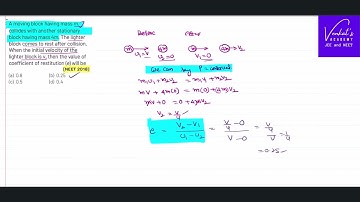 A moving block having mass m,
collides with another stationary
block having mass 4m. The lighter
block comes to rest after collision.
When the initial velocity of the
lighter block is v, then the value of
coefficient of restitution (e) will be
[NEET 2018]
(a) 0.8 (b) 0.25
(c) 0.5 (d) 0.4
Before After
m 4m m 4m
u₁=v u₂=0 v₁=0 v₂
We can say P = constant
m₁u₁ + m₂u₂ = m₁v₁ + m₂v₂
mv + 4m(0) = m(0) + (4m)v₂
mv + 0 = 0 + 4mv₂
v₂ = v/4
e = (v₂ - v₁)/(u₁ - u₂) = (v/4 - 0)/(v - 0) = (v/4)/v = 1/4
= 0.25
Venkat's
ACADEMY
JEE and NEET